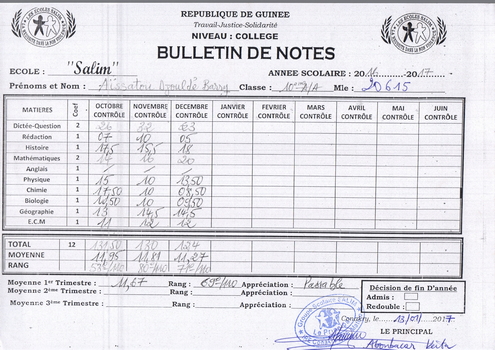 REPUBLIQUE DE GUINEE
Travail-Justice-Solidarité
NIVEAU : COLLEGE
BULLETIN DE NOTES
ECOLE : "Salim" ANNEE SCOLAIRE : 2016 -2017
Prénoms et Nom : Aïssatou Djouldé Barry Classe : 10ème A/A Mle : 20615
MATIERES Coef OCTOBRE CONTRÔLE NOVEMBRE CONTRÔLE DECEMBRE CONTRÔLE JANVIER CONTRÔLE FEVRIER CONTRÔLE MARS CONTRÔLE AVRIL CONTRÔLE MAI CONTRÔLE JUIN CONTRÔLE
Dictée-Question 2 26 22 23
Rédaction 1 07 10 05
Histoire 1 17,5 15,5 18
Mathématiques 2 17 16 20
Anglais 1
Physique 1 15 10 13,50
Chimie 1 17,50 10
Biologie 1 10
Géographie 1 13 14,5 14,5
E.C.M 1 11 12 12
TOTAL 12 131,50 130 124
MOYENNE 11,95 11,81 11,27
RANG
Moyenne 1er Trimestre : 11,67 Rang : Appréciation : Passable
Moyenne 2ème Trimestre : Rang : Appréciation :
Moyenne 3ème Trimestre : Rang : Appréciation :
Décision de fin D'année
Admis :
Redouble :
Conakry, le 13/01/2017
LE PRINCIPAL
Aboubacar Keita